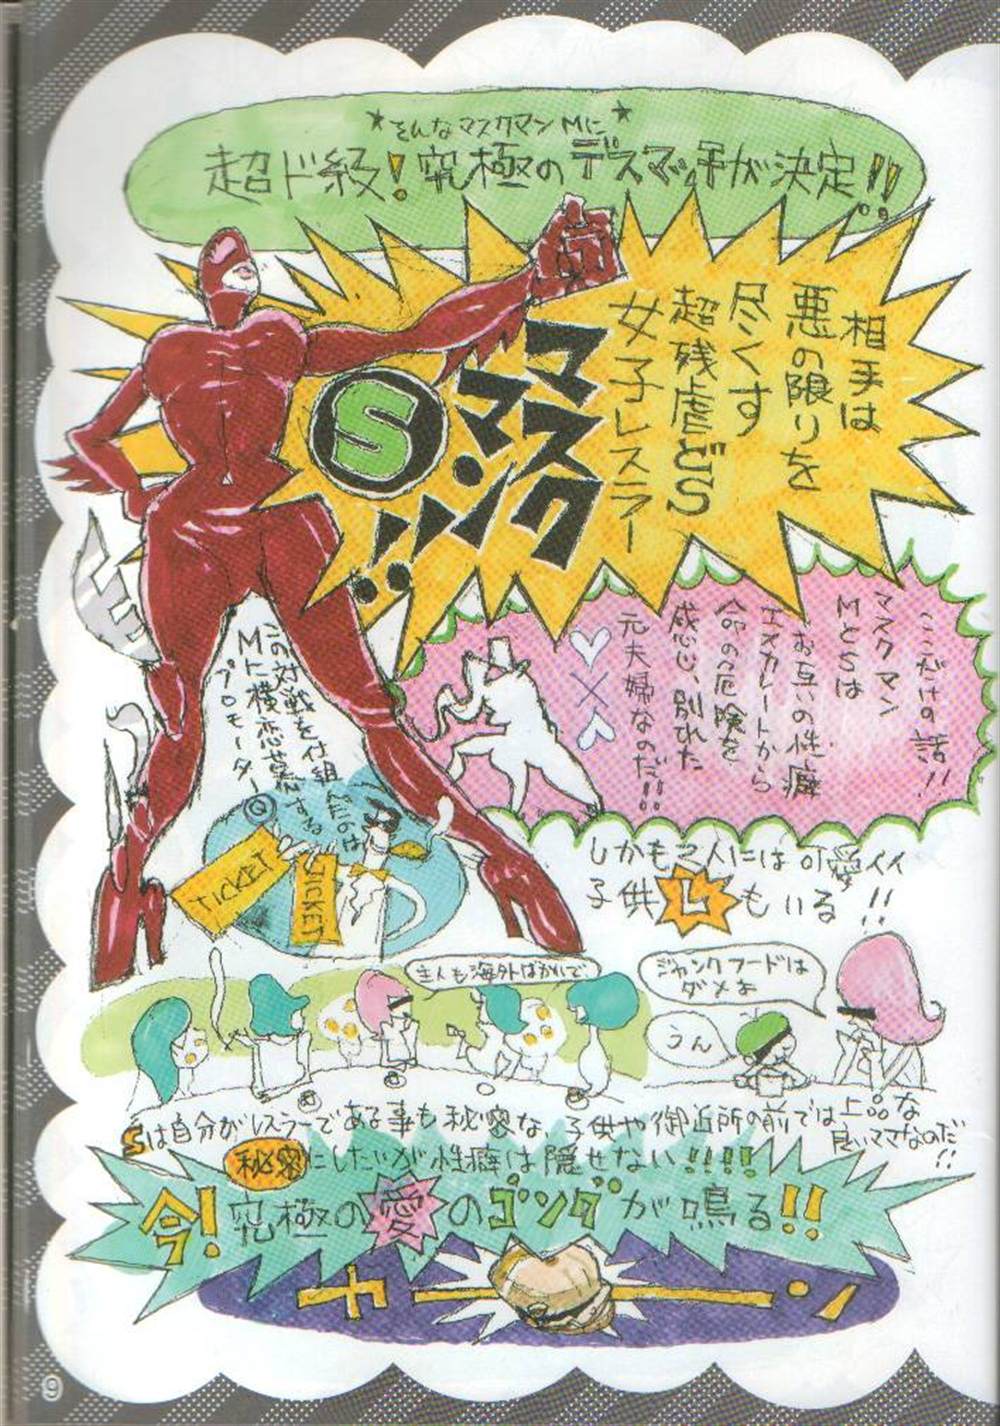 ★そんなマスクマンMに★
超ド級!究極のデスマッチが決定!!
相手は
悪の限りを
尽くす
超残虐どS
女子レスラー
マスク
マン
S
!!
ここだけの話!!
マスクマン
MとSは
お互いの性癖
エスカレートから
命の危険を
感じ、別れた
元夫婦なのだ!!
この対戦を仕組んだのは
Mに横恋慕する
プロモーター
Q
TICKET
TICKET
しかも二人には可愛イイ
子供Lもいる!!
主人も海外ばかりで
ジャンクフードは
ダメよ
うん
Sは自分がレスラーである事も秘密な、子供や御近所の前では上品な
良いママなのだ!!
秘密にしたいが性癖は隠せない!!!!
今!究極の愛のゴングが鳴る!!
チーン
9